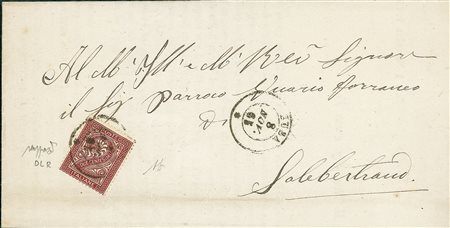 Al M.to Ill.e e M.to Rev. Signore
il Sig Parroco Vicario Foraneo
di
SUSA
19
NOV
8
Salebertrand
DLR